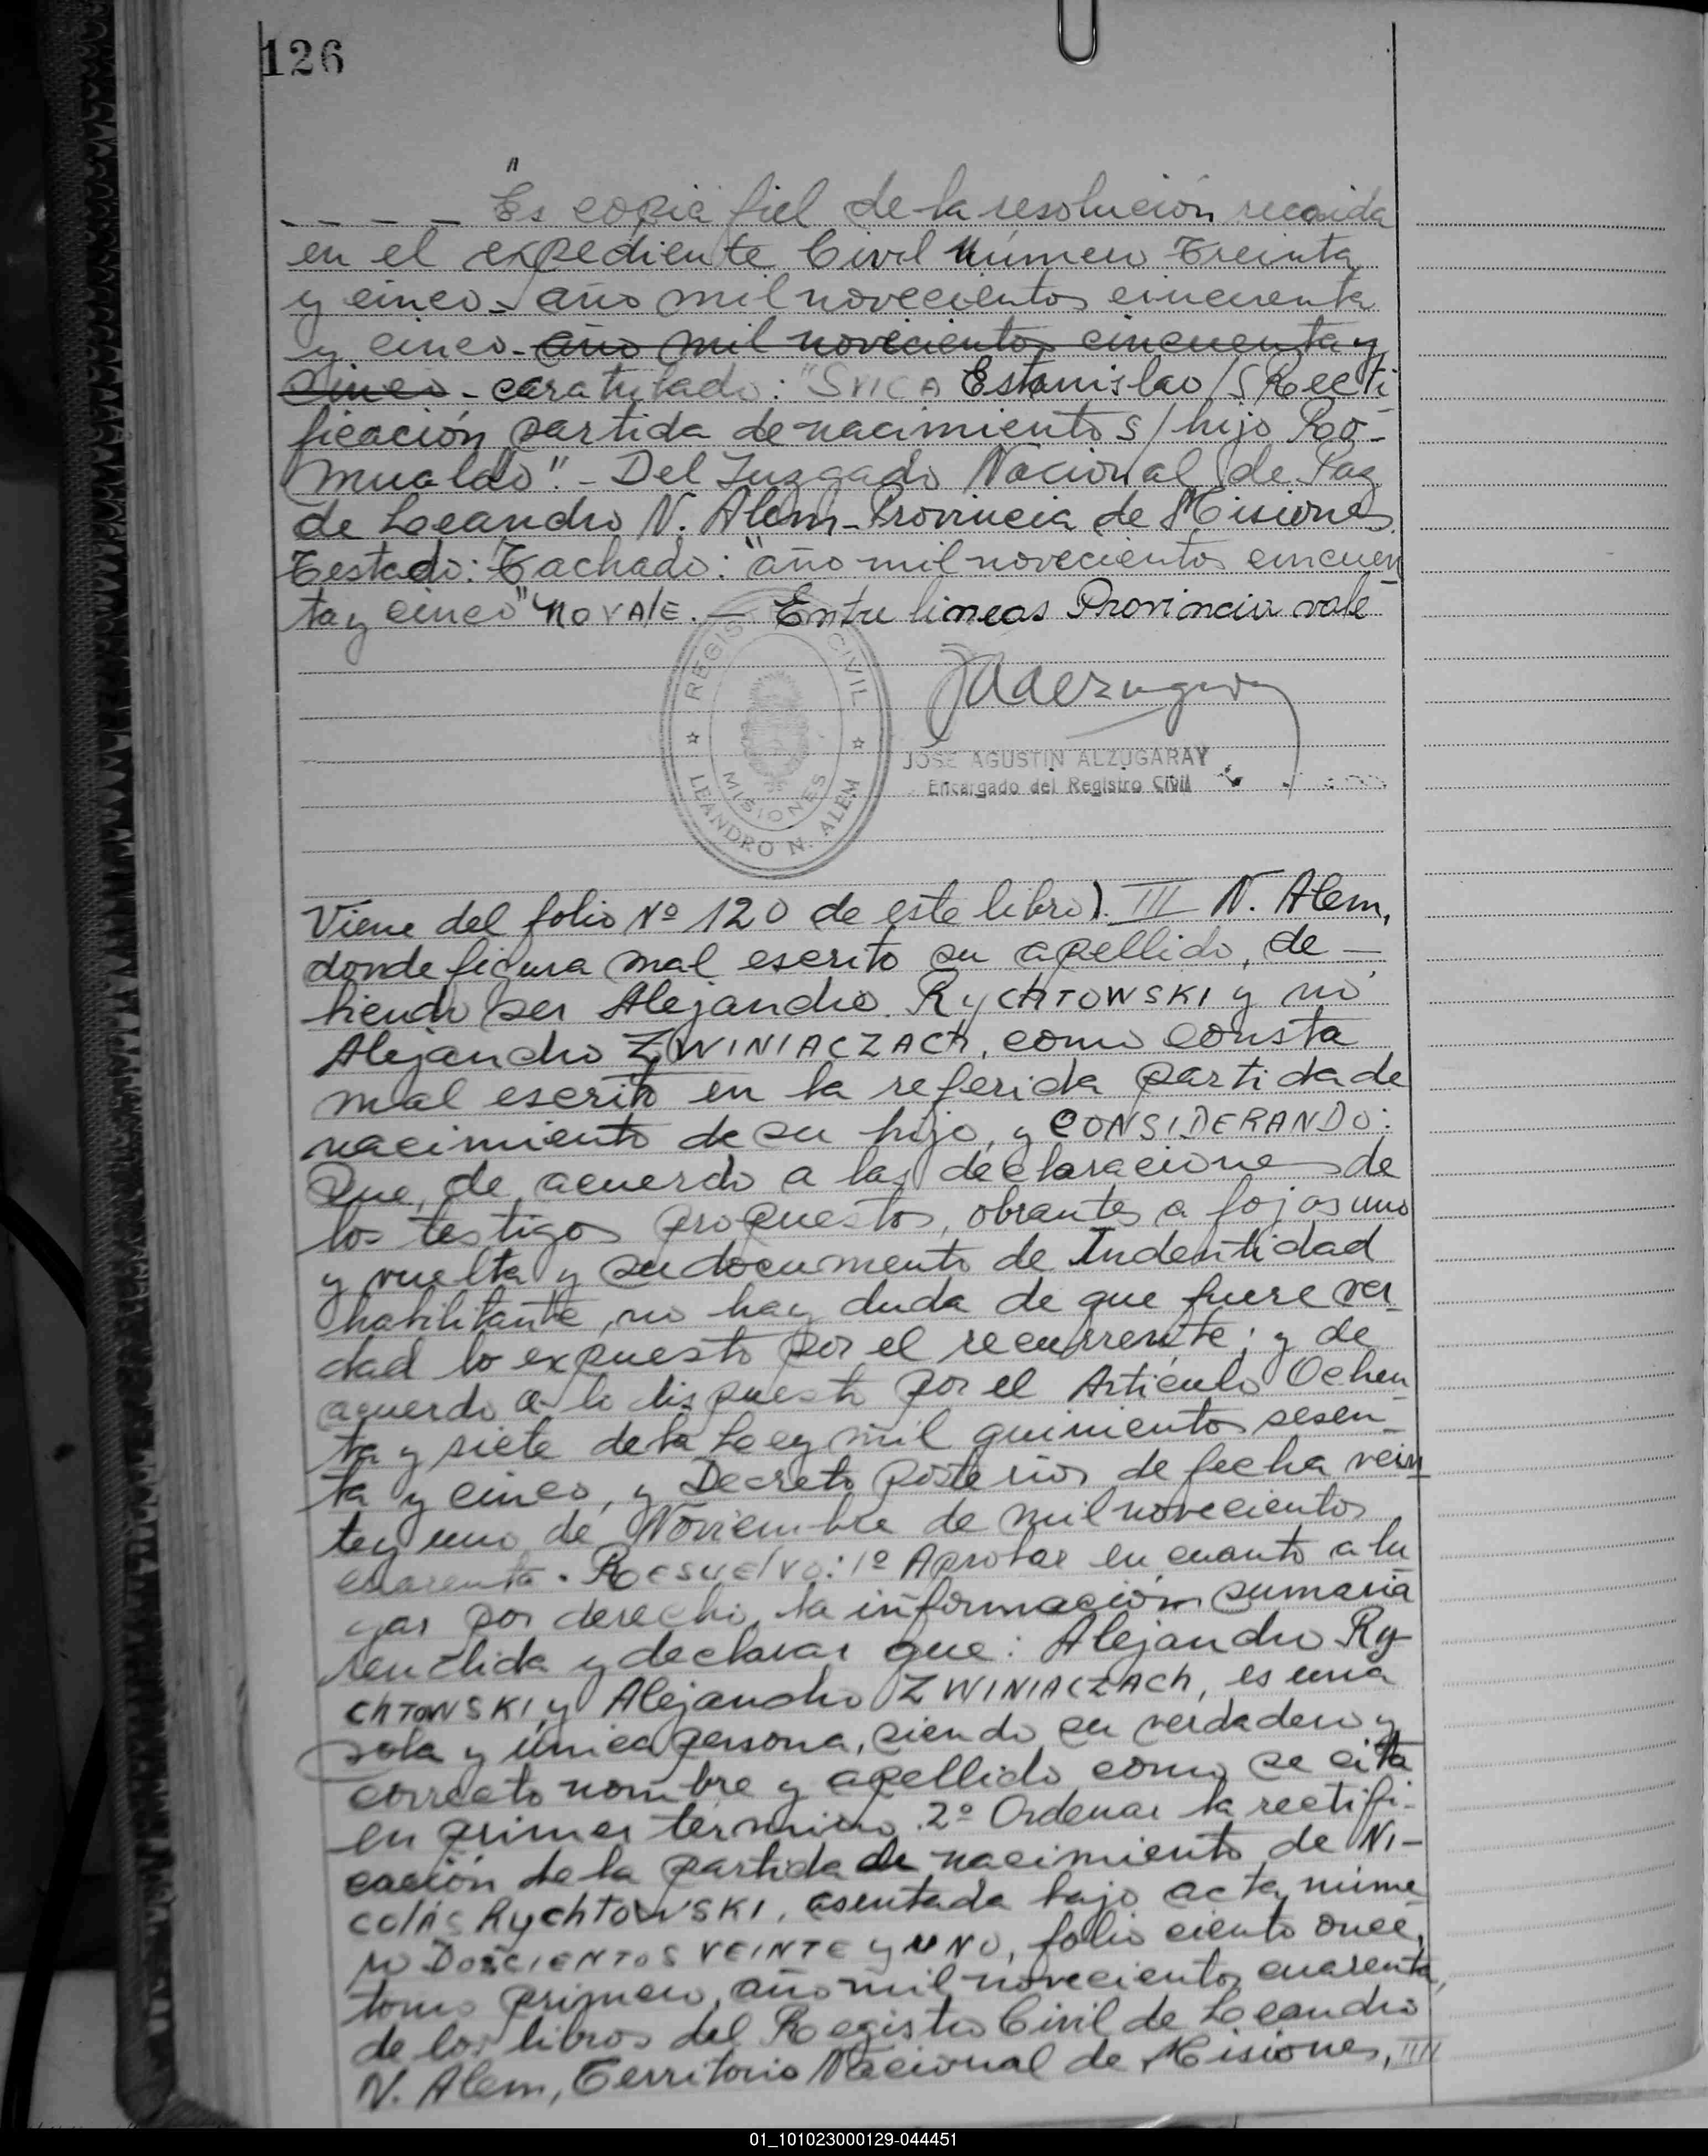 126
"
_ _ _ _ Es copia fiel de la resolución recaida
en el expediente Civil Número treinta
y cinco - año mil novecientos cincuenta
y cinco - año mil novecientos cincuenta y
cinco - caratulado: "SVICA Estanislao /S Recti
ficación partida de nacimiento s/ hijo Ro-
mualdo". - Del Juzgado Nacional de Paz
de Leandro N. Alem - Provincia de Misiones
Testado: Tachado: "año mil novecientos cincuen
ta y cinco" NO VALE. — Entre lineas Provincia vale
REGISTRO CIVIL
MISIONES
LEANDRO N. ALEM
JOSE AGUSTIN ALZUGARAY
Encargado del Registro Civil
Viene del folio Nº 120 de este libro). III N. Alem,
donde figura mal escrito su apellido, de —
biendo ser Alejandro RychTOWSKI y no
Alejandro ZWINIACZACh, como consta
mal escrito en la referida partida de
nacimiento de su hijo, y CONSIDERANDO:
Que, de acuerdo a las declaraciones de
los testigos propuestos, obrantes a fojas uno
y vuelta y su documento de Indentidad
habilitante, no hay duda de que fuere ver
dad lo expuesto por el recurrente; y de
acuerdo a lo dispuesto por el Artículo Ochen
ta y siete de la Ley mil quinientos sesen-
ta y cinco, y Decreto posterior de fecha vein
te y uno de Noviembre de mil novecientos
cuarenta. RESUELVO: 1º Aprobar en cuanto a lu
gar por derecho, la información sumaria
rendida y declarar que: Alejandro Ry-
chTOWSKI y Alejandro ZWINIACZACh, es una
sola y única persona, siendo su verdadero y
correcto nombre y apellido como se cita
en primer término. 2º Ordenar la rectifi-
cación de la partida de nacimiento de Ni-
colás RychTOWSKI, asentada bajo acta núme
ro DOSCIENTOS VEINTE y UNO, folio ciento once,
tomo primero, año mil novecientos cuarenta,
de los libros del Registro Civil de Leandro
N. Alem, Territorio Nacional de Misiones, III
01_101023000129-044451